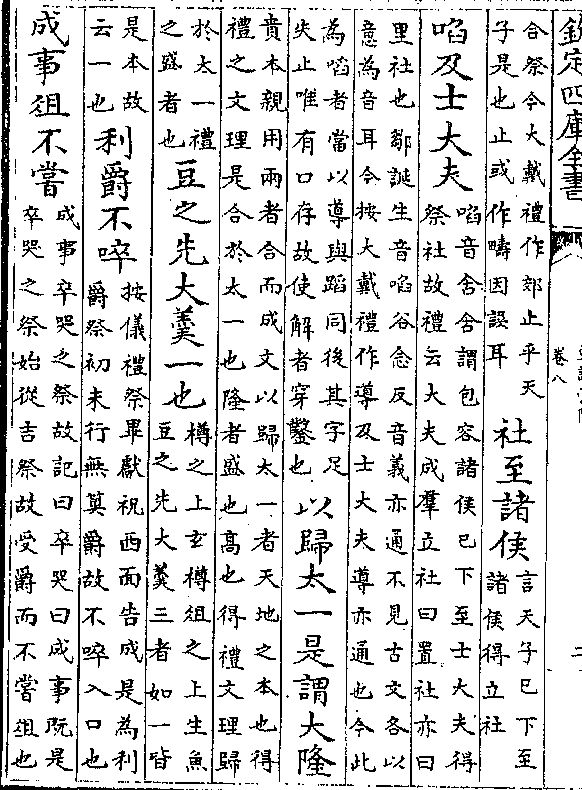 欽定四庫全書
卷八
合祭今大戴禮作郊止乎天
子是也止或作疇因誤耳
社至諸侯
言天子已下至
諸侯得立社
啗及士大夫
啗音含含謂包容諸侯已下至士大夫得
祭社故禮云大夫成羣立社曰置社亦曰
里社也鄒誕生音啗谷念反音義亦通不見古文各以
意為音耳今按大戴禮作導及士大夫導亦通也今此
為啗者當以導與蹈同後其字足
失止唯有口存故使解者穿鑿也
以歸太一是謂大隆
貴本親用兩者合而成文以歸太一者天地之本也得
禮之文理是合於太一也隆者盛也髙也得禮文理歸
於太一禮
之盛者也
豆之先大羹一也
樽之上玄樽俎之上生魚
豆之先大羹三者如一皆
是本故
云一也
利爵不啐
按儀禮祭畢獻祝西面告成是為利
爵祭初未行無奠爵故不啐入口也
成事俎不嘗
成事卒哭之祭故記曰卒哭曰成事既是
卒哭之祭始從吉祭故受爵而不嘗俎也